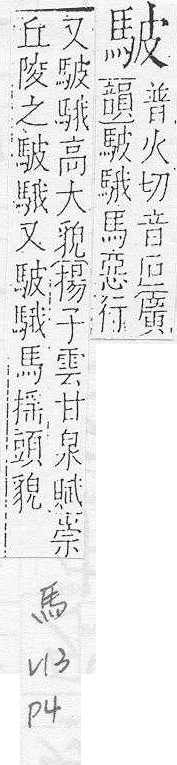 駊
普火切音叵廣
韻駊騀馬惡行
又駊騀高大貌揚子雲甘泉賦崇
丘陵之駊騀又駊騀馬搖頭貌
馬
V13
P4